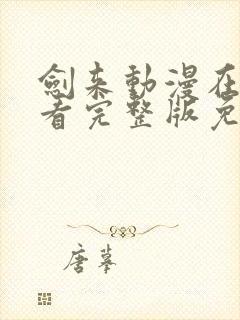 劍来動漫在
看完整版免
唐摹